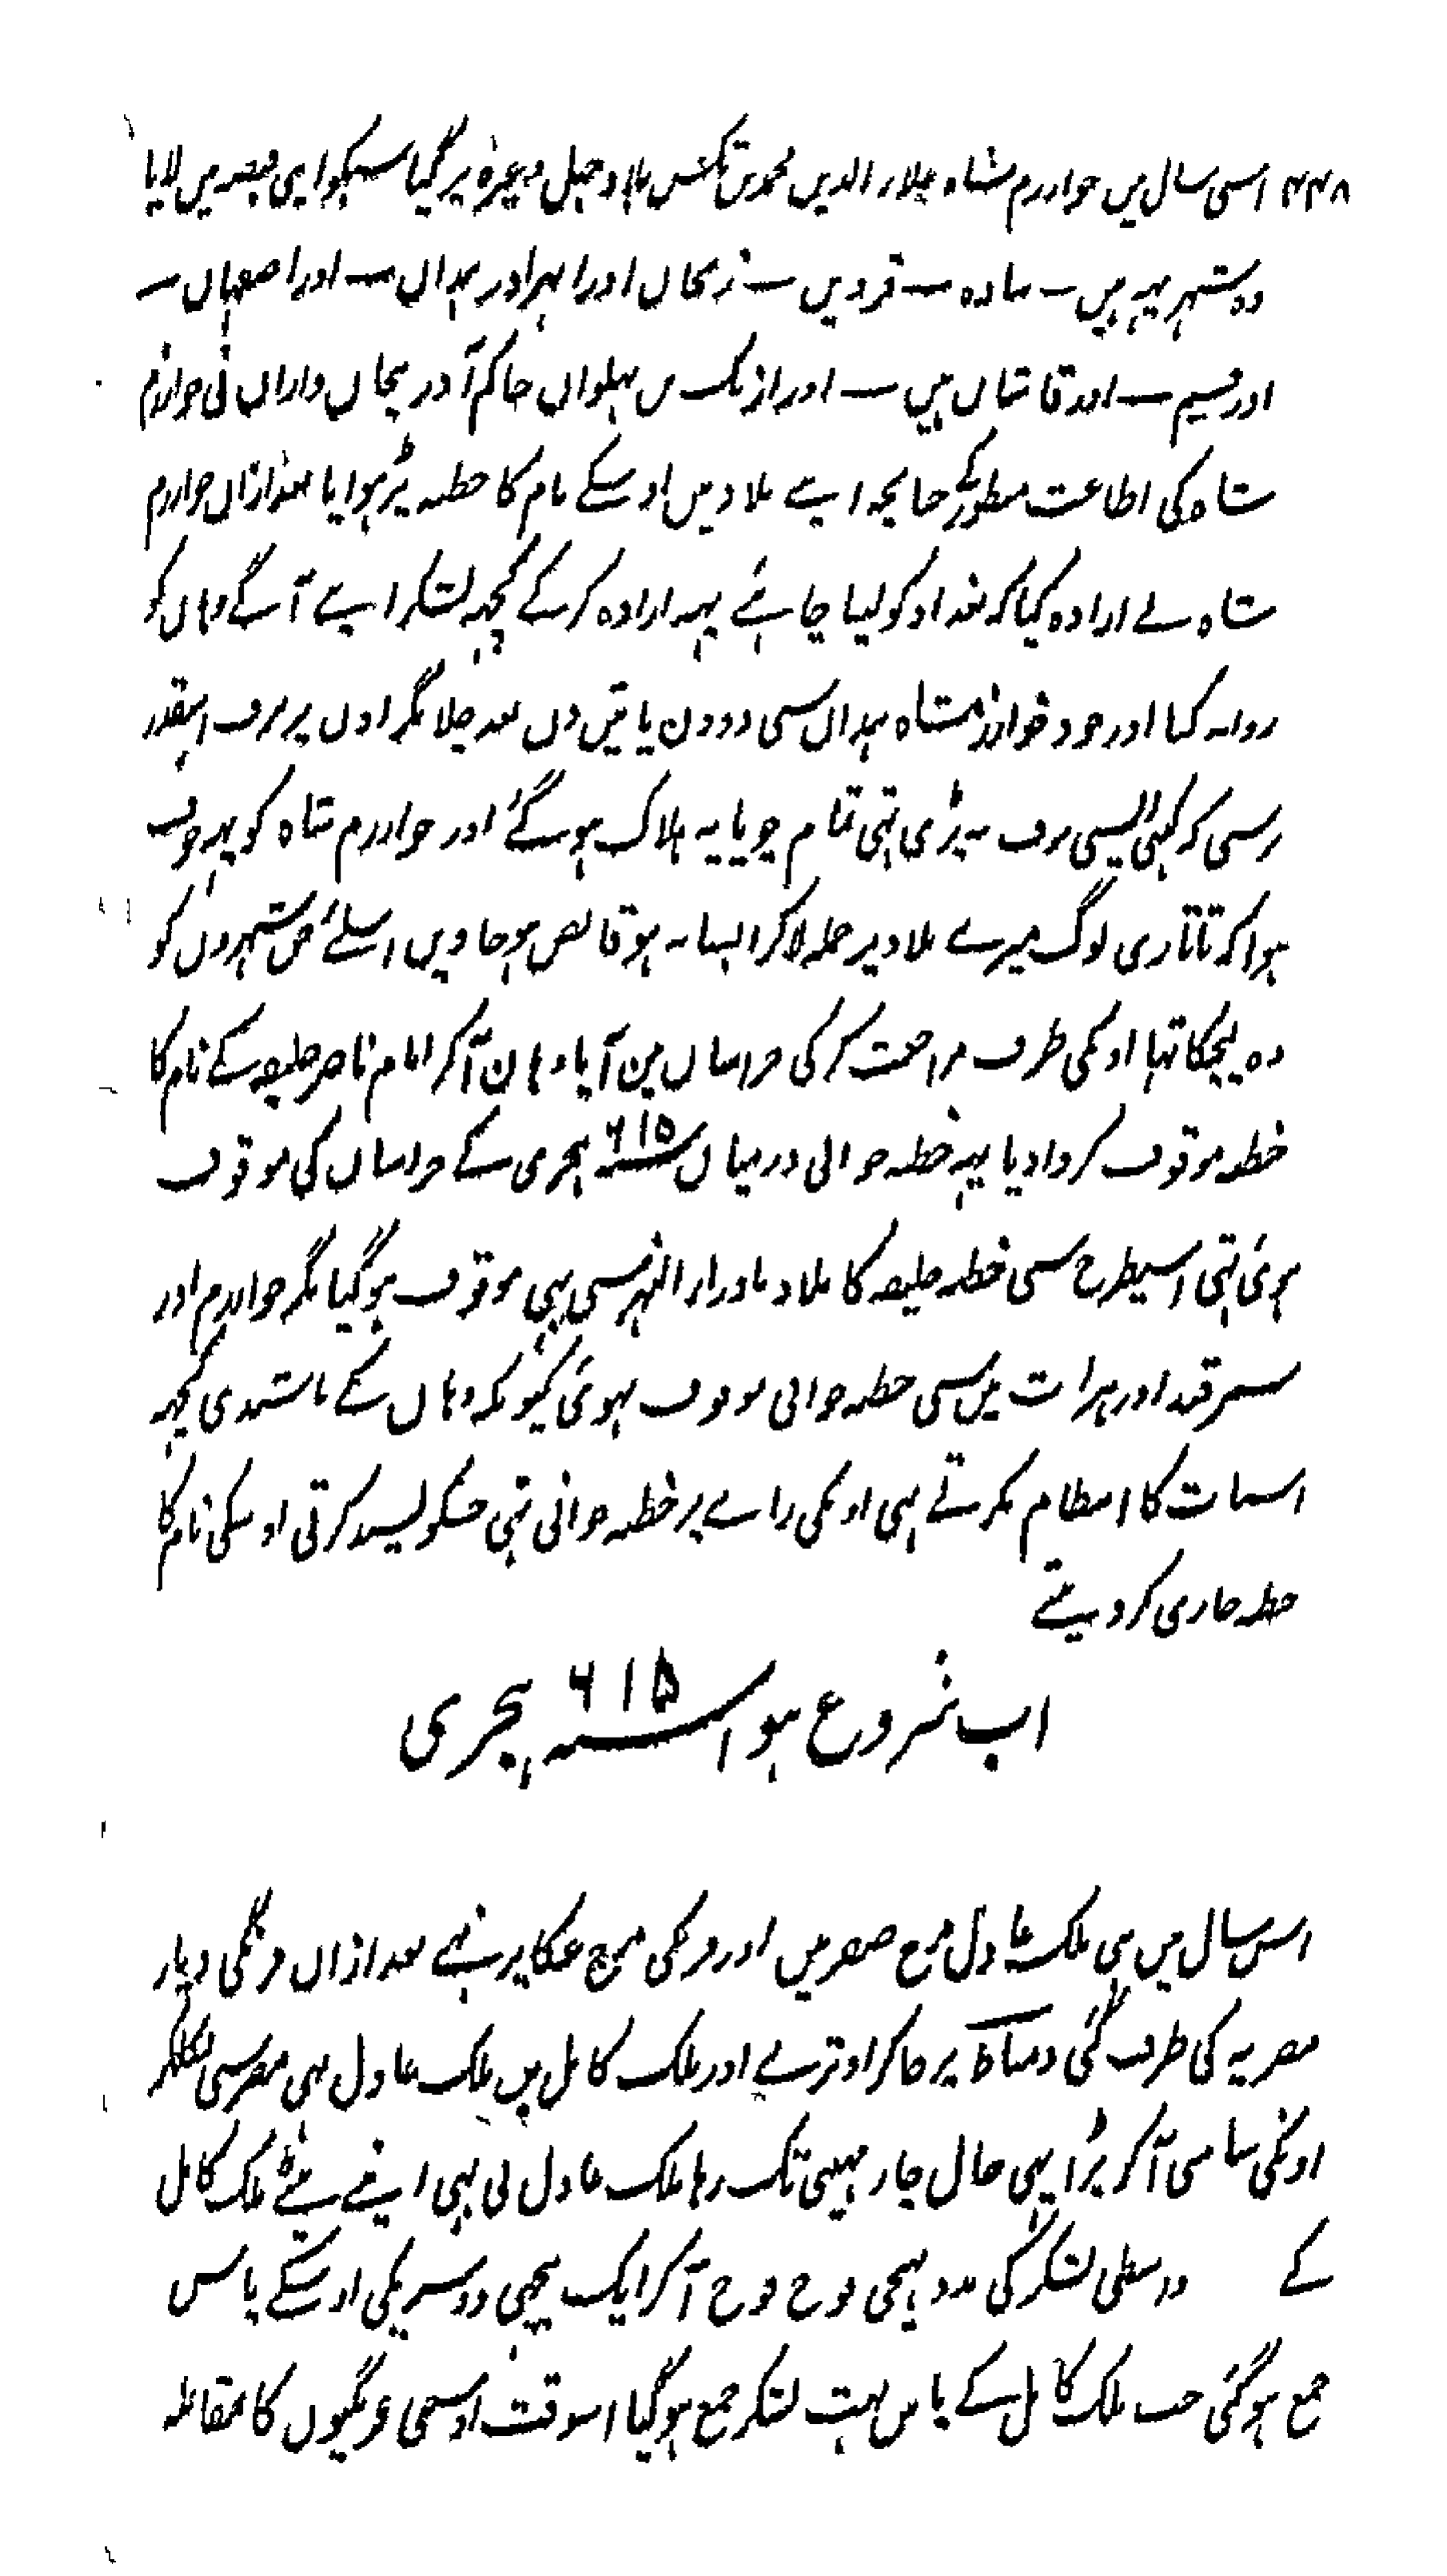 ۴۴۸ اسی سال میں خوارزم شاہ علاء الدین محمد بن تکش بلاد جبل وغیرہ پر گیا سبکو اپنی قبضہ میں لایا
وہ شہر یہہ ہیں ساوہ قزوین زنجان اور ابہر اور ہمدان اور اصفہان
اور قم اور قاشان ہیں اور ازبک بن پہلوان حاکم آذربیجان واران نی خوارزم
شاہ کی اطاعت منظور کے چنانچہ اپنے بلاد میں اوسکے نام کا خطبہ پڑہوایا بعد ازان خوارزم
شاہ نے ارادہ کیا کہ بغداد کو لینا چاہئے یہہ ارادہ کر کے کچہہ لشکر اپنے آگے وہاں کو
روانہ کیا اور خود خوارزمشاہ ہمدان سی دو دن یا تین دن بعد چلا مگر اون پر برف اسقدر
برسی کہ کبہی ایسی برف نہ پڑی تہی تمام چوپایہ ہلاک ہو گئے اور خوارزم شاہ کو یہہ خوف
ہوا کہ تاتاری لوگ میرے بلاد پر حملہ لا کر ایسا نہ ہو قابض ہو جاویں اسلئے جن شہروں کو
وہ لیچکا تہا اونکی طرف مراجعت کر کی خراسان مین آیا وہان آکر امام ناصر خلیفہ کے نام کا
خطبہ موقوف کروا دیا یہہ خطبہ خوانی درمیان سنہ ۶۱۵ ہجری کے خراسان کی موقوف
ہوئی تہی اسیطرح سی خطبہ خلیفہ کا بلاد ماوراء النہر سی بہی موقوف ہو گیا مگر خوارزم اور
سمرقند اور ہرات میں سی خطبہ خوانی موقوف نہوئی کیونکہ وہاں کے باشندی کچہہ
اسبات کا انتظام نکرتے تہی اونکی رائے پر خطبہ خوانی تہی جسکو پسند کرتی اوسکی نام کا
خطبہ جاری کر دیتے
اب شروع ہوا سنہ ۶۱۵ ہجری
اس سال میں بہی ملک عادل مرج صفر میں اور فرنگی مرج عکا پر تہے بعد ازان فرنگی دیار
مصریہ کی طرف گئی دمیاط پر جا کر اوترے اور ملک کامل بن ملک عادل بہی مصر سی نکلکر
اونکی سامنی آکر پڑا یہی حال چار مہینی تک رہا ملک عادل نی بہی اپنے بیٹے ملک کامل
کے واسطی لشکر کی مدد بہیجی فوج فوج آکر ایک پیچہی دوسریکی اوسکے پاس
جمع ہو گئی جب ملک کامل کے پاس بہت لشکر جمع ہو گیا اسوقت اوسنی فرنگیوں کا مقابلہ